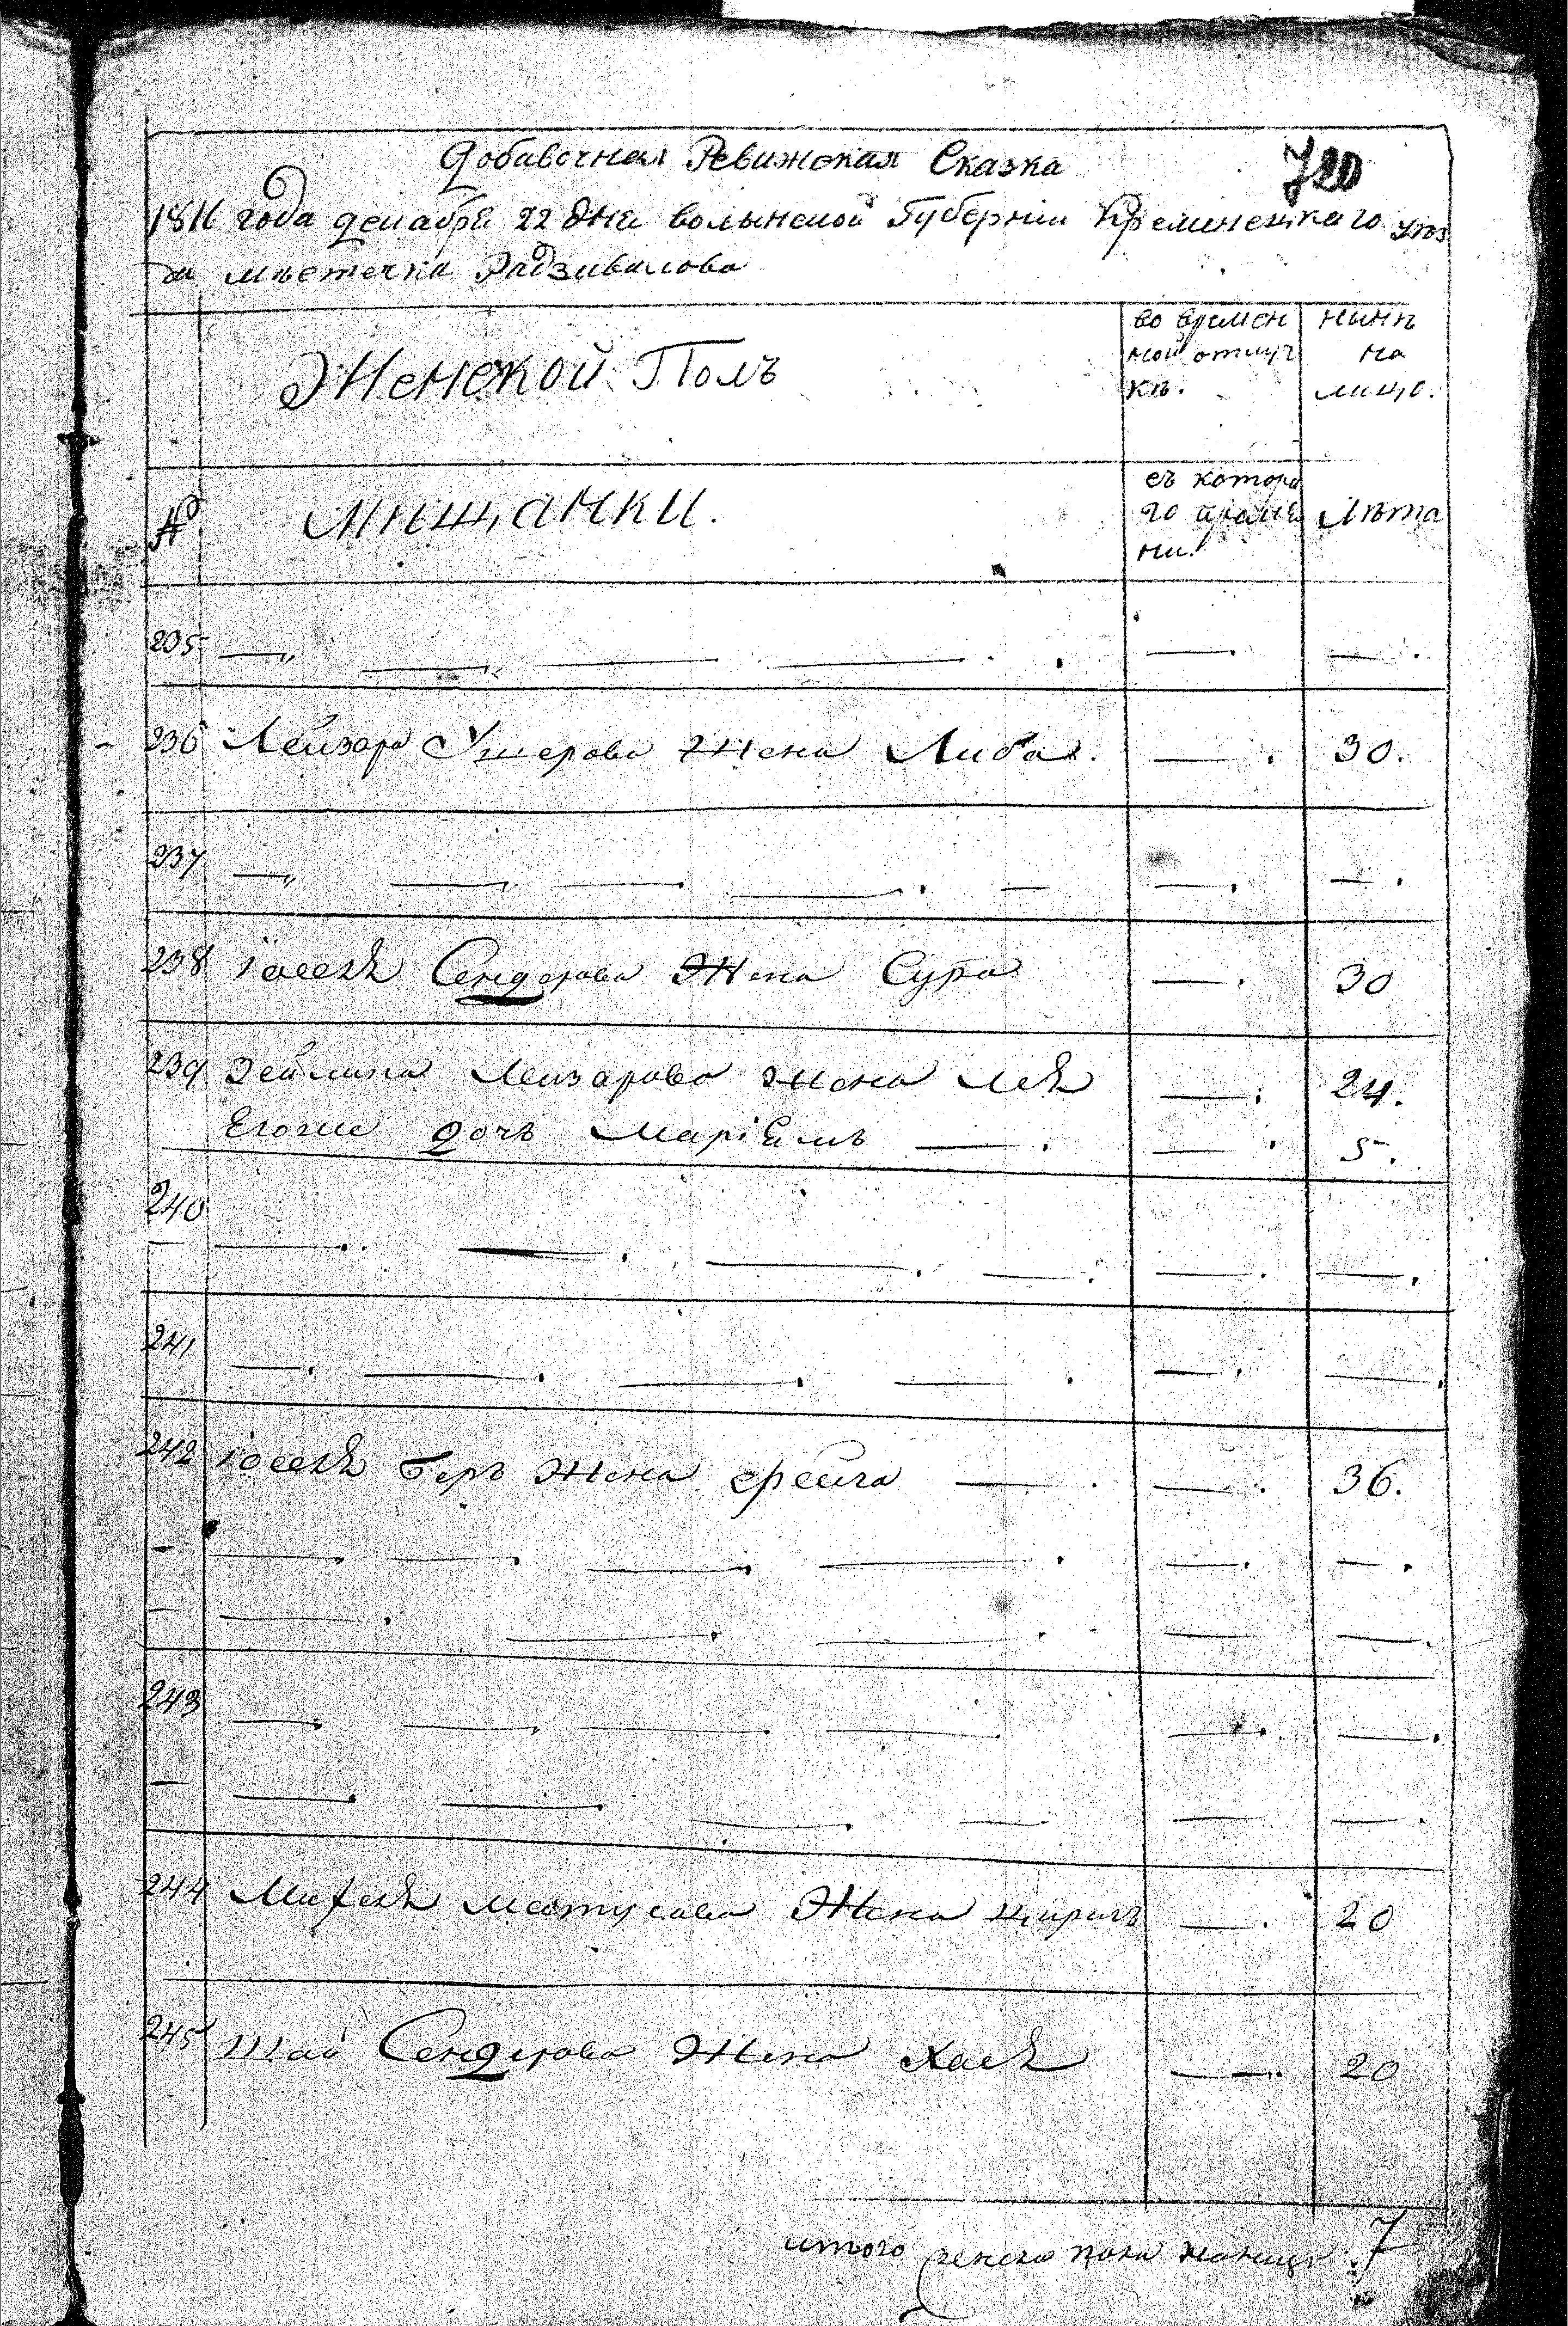 Добавочная Ревижская Сказка
720
1816 года декабря 22 дня волынской Губернии Кременецкаго уѣз
да мѣстечка Радзивилова
Женской Полъ
во времен
ной отлуч
кѣ.
нынѣ
на
лицо.
№
Мѣщанки.
съ котора
го време
ни.
Лѣта
235
236 Лейзора Ушерова Жена Либа. 30.
237
238 іоселя Сендерова Жена Сура 30
239 Зейлика Лейзарова жена Лея 24.
Егоже дочь Маріемъ 5.
240
241
242 іоселя Беръ Жена фрейга 36.
243
244 Михеля Матусова Жена 20
245 Шаи Сендерова Жена Хася 20
итого женска пола налицо 7